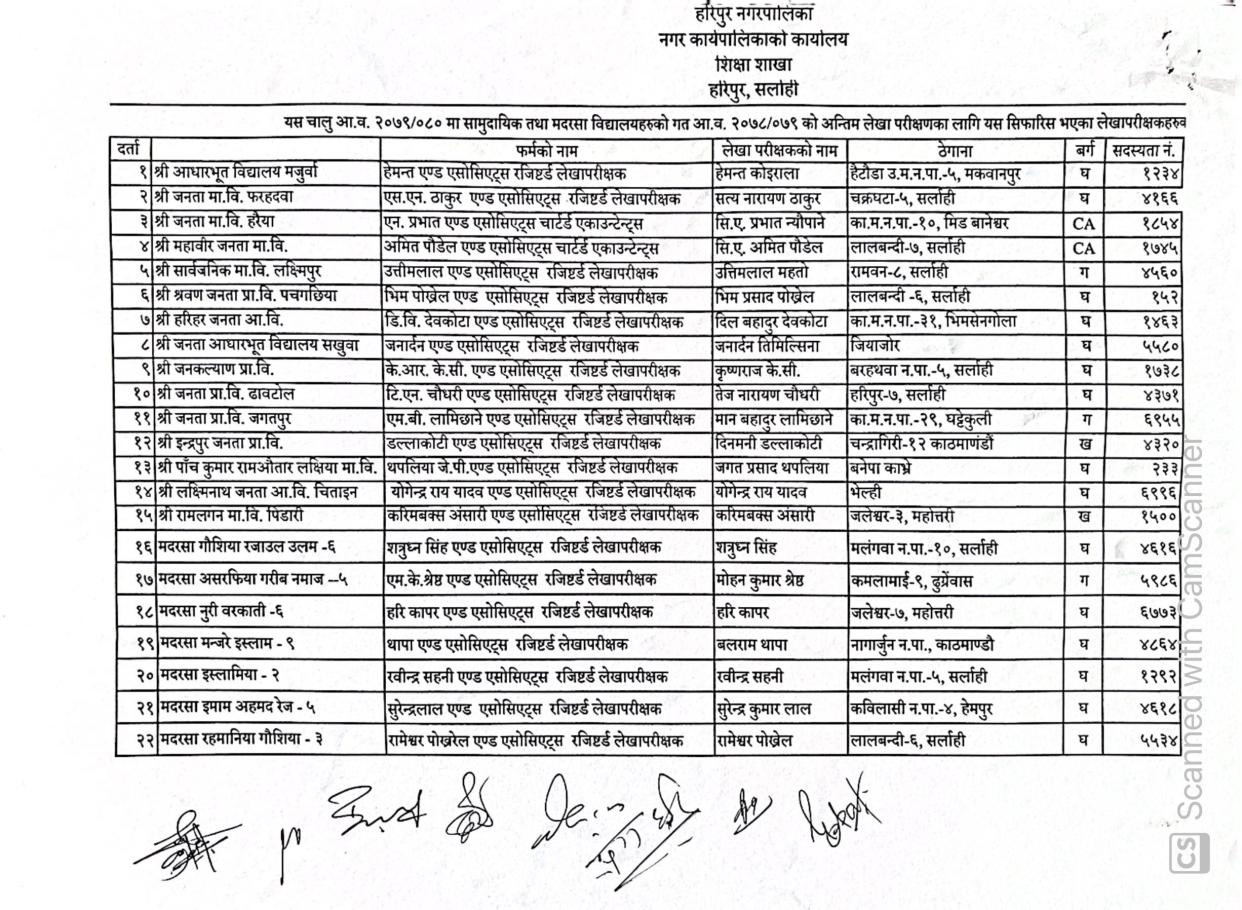 हरिपुर नगरपालिका
नगर कार्यपालिकाको कार्यालय
शिक्षा शाखा
हरिपुर, सर्लाही
यस चालु आ.व. २०७९/०८० मा सामुदायिक तथा मदरसा विद्यालयहरुको गत आ.व. २०७८/०७९ को अन्तिम लेखा परीक्षणका लागि यस सिफारिस भएका लेखापरीक्षकहरु
दर्ता फर्मको नाम लेखा परीक्षकको नाम ठेगाना बर्ग सदस्यता नं.
१ श्री आधारभूत विद्यालय मजुर्वा हेमन्त एण्ड एसोसिएट्स रजिष्टर्ड लेखापरीक्षक हेमन्त कोइराला हैटौडा उ.म.न.पा.-५, मकवानपुर घ १२३४
२ श्री जनता मा.वि. फरहदवा एस.एन. ठाकुर एण्ड एसोसिएट्स रजिष्टर्ड लेखापरीक्षक सत्य नारायण ठाकुर चक्रघटा-५, सर्लाही घ ४१६६
३ श्री जनता मा.वि. हरैया एन. प्रभात एण्ड एसोसिएट्स चार्टर्ड एकाउन्टेन्ट्स सि.ए. प्रभात न्यौपाने का.म.न.पा.-१०, मिड बानेश्वर CA १८५४
४ श्री महावीर जनता मा.वि. अमित पौडेल एण्ड एसोसिएट्स चार्टर्ड एकाउन्टेन्ट्स सि.ए. अमित पौडेल लालबन्दी-७, सर्लाही CA १७४५
५ श्री सार्वजनिक मा.वि. लक्ष्मिपुर उत्तीमलाल एण्ड एसोसिएट्स रजिष्टर्ड लेखापरीक्षक उत्तिमलाल महतो रामवन-८, सर्लाही ग ४५६०
६ श्री श्रवण जनता प्रा.वि. पचगछिया भिम पोख्रेल एण्ड एसोसिएट्स रजिष्टर्ड लेखापरीक्षक भिम प्रसाद पोख्रेल लालबन्दी -६, सर्लाही घ १५२
७ श्री हरिहर जनता आ.वि. डि.वि. देवकोटा एण्ड एसोसिएट्स रजिष्टर्ड लेखापरीक्षक दिल बहादुर देवकोटा का.म.न.पा.-३१, भिमसेनगोला घ १४६३
८ श्री जनता आधारभूत विद्यालय सखुवा जनार्दन एण्ड एसोसिएट्स रजिष्टर्ड लेखापरीक्षक जनार्दन तिमिल्सिना जियाजोर घ ५५८०
९ श्री जनकल्याण प्रा.वि. के.आर. के.सी. एण्ड एसोसिएट्स रजिष्टर्ड लेखापरीक्षक कृष्णराज के.सी. बरहथवा न.पा.-५, सर्लाही घ १७३८
१० श्री जनता प्रा.वि. ढावटोल टि.एन. चौधरी एण्ड एसोसिएट्स रजिष्टर्ड लेखापरीक्षक तेज नारायण चौधरी हरिपुर-७, सर्लाही घ ४३७१
११ श्री जनता प्रा.वि. जगतपुर एम.बी. लामिछाने एण्ड एसोसिएट्स रजिष्टर्ड लेखापरीक्षक मान बहादुर लामिछाने का.म.न.पा.-२९, घट्टेकुली ग ६९५५
१२ श्री इन्द्रपुर जनता प्रा.वि. डल्लाकोटी एण्ड एसोसिएट्स रजिष्टर्ड लेखापरीक्षक दिनमनी डल्लाकोटी चन्द्रागिरी-१२ काठमाण्डौं ख ४३२०
१३ श्री पाँच कुमार रामऔतार लक्षिया मा.वि. थपलिया जे.पी.एण्ड एसोसिएट्स रजिष्टर्ड लेखापरीक्षक जगत प्रसाद थपलिया बनेपा काभ्रे घ २३३
१४ श्री लक्ष्मिनाथ जनता आ.वि. चिताइन योगेन्द्र राय यादव एण्ड एसोसिएट्स रजिष्टर्ड लेखापरीक्षक योगेन्द्र राय यादव भेल्ही घ ६९९६
१५ श्री रामलगन मा.वि. पिडारी करिमबक्स अंसारी एण्ड एसोसिएट्स रजिष्टर्ड लेखापरीक्षक करिमबक्स अंसारी जलेश्वर-३, महोत्तरी ख १५००
१६ मदरसा गौशिया रजाउल उलम -६ शत्रुघ्न सिंह एण्ड एसोसिएट्स रजिष्टर्ड लेखापरीक्षक शत्रुघ्न सिंह मलंगवा न.पा.-१०, सर्लाही घ ४६१६
१७ मदरसा असरफिया गरीब नमाज –५ एम.के.श्रेष्ठ एण्ड एसोसिएट्स रजिष्टर्ड लेखापरीक्षक मोहन कुमार श्रेष्ठ कमलामाई-९, ढुग्रेंवास ग ५९८६
१८ मदरसा नुरी वरकाती -६ हरि कापर एण्ड एसोसिएट्स रजिष्टर्ड लेखापरीक्षक हरि कापर जलेश्वर-७, महोत्तरी घ ६७७३
१९ मदरसा मन्जरे इस्लाम - ९ थापा एण्ड एसोसिएट्स रजिष्टर्ड लेखापरीक्षक बलराम थापा नागार्जुन न.पा., काठमाण्डौ घ ४८६४
२० मदरसा इस्लामिया - २ रवीन्द्र सहनी एण्ड एसोसिएट्स रजिष्टर्ड लेखापरीक्षक रवीन्द्र सहनी मलंगवा न.पा.-५, सर्लाही घ १२९२
२१ मदरसा इमाम अहमद रेज - ५ सुरेन्द्रलाल एण्ड एसोसिएट्स रजिष्टर्ड लेखापरीक्षक सुरेन्द्र कुमार लाल कविलासी न.पा.-४, हेमपुर घ ४६१८
२२ मदरसा रहमानिया गौशिया - ३ रामेश्वर पोख्ररेल एण्ड एसोसिएट्स रजिष्टर्ड लेखापरीक्षक रामेश्वर पोख्रेल लालबन्दी-६, सर्लाही घ ५५३४
CS Scanned with CamScanner